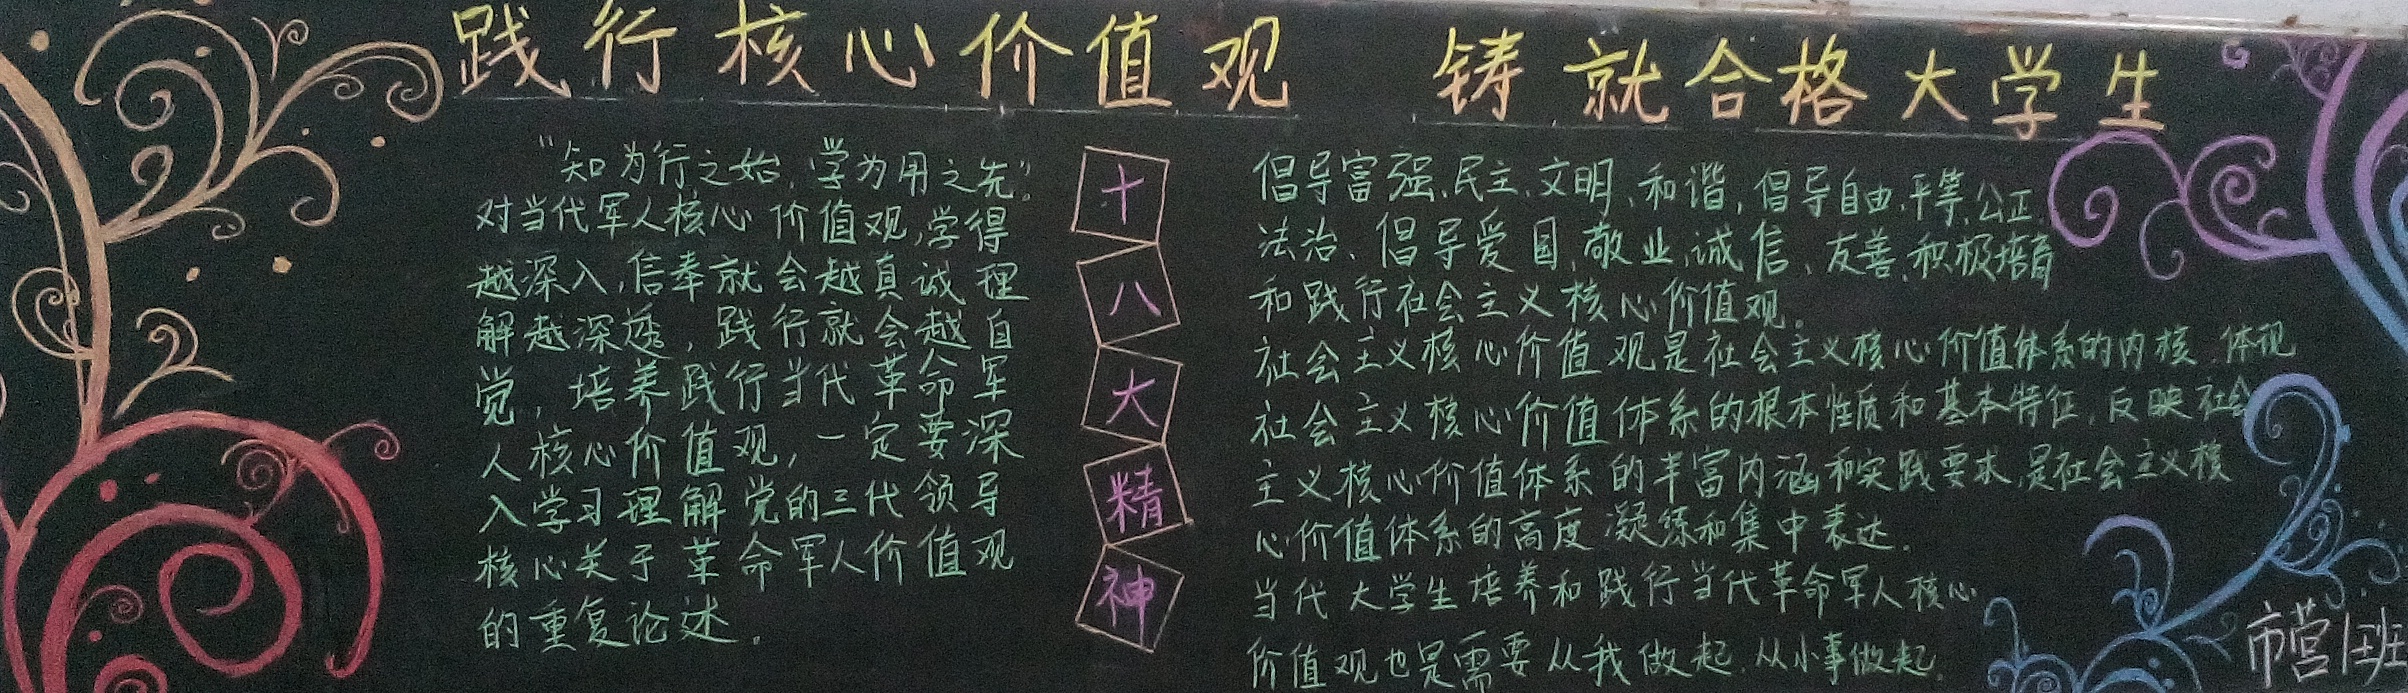 践行核心价值观 铸就合格大学生
"知为行之始,学为用之先"。
对当代军人核心价值观,学得
越深入,信奉就会越真诚理
解越深透,践行就会越自
觉,培养践行当代革命军
人核心价值观,一定要深
入学习理解党的三代领导
核心关于革命军人价值观
的重复论述。
十
八
大
精
神
倡导富强、民主、文明、和谐,倡导自由、平等、公正、
法治、倡导爱国、敬业、诚信、友善、积极培育
和践行社会主义核心价值观。
社会主义核心价值观是社会主义核心价值体系的内核,体现
社会主义核心价值体系的根本性质和基本特征,反映社会
主义核心价值体系的丰富内涵和实践要求,是社会主义核
心价值体系的高度凝练和集中表达.
当代大学生培养和践行当代革命军人核心
价值观也是需要从我做起,从小事做起.
市营1班